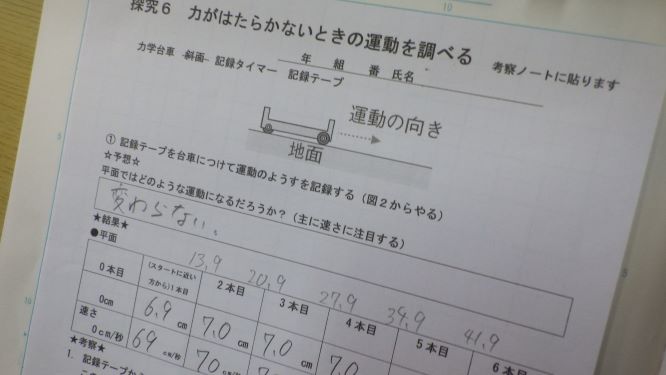 探究6 力がはたらかないときの運動を調べる 考察ノートに貼ります
年 組 番 氏名
力学台車 斜面 記録タイマー 記録テープ
運動の向き
地面
① 記録テープを台車につけて運動のようすを記録する(図2からやる)
☆予想☆
平面ではどのような運動になるだろうか?(主に速さに注目する)
変わらない。
★結果★
●平面
13.9 20.9 27.9 34.9 41.9
0本目 (スタートに近い方から)1本目 2本目 3本目 4本目 5本目 6本目
0cm 6.9 cm 7.0 cm 7.0 cm 7.0
速さ 0cm/秒 69 cm/秒 70 cm/秒
★考察★
1. 記録テープから